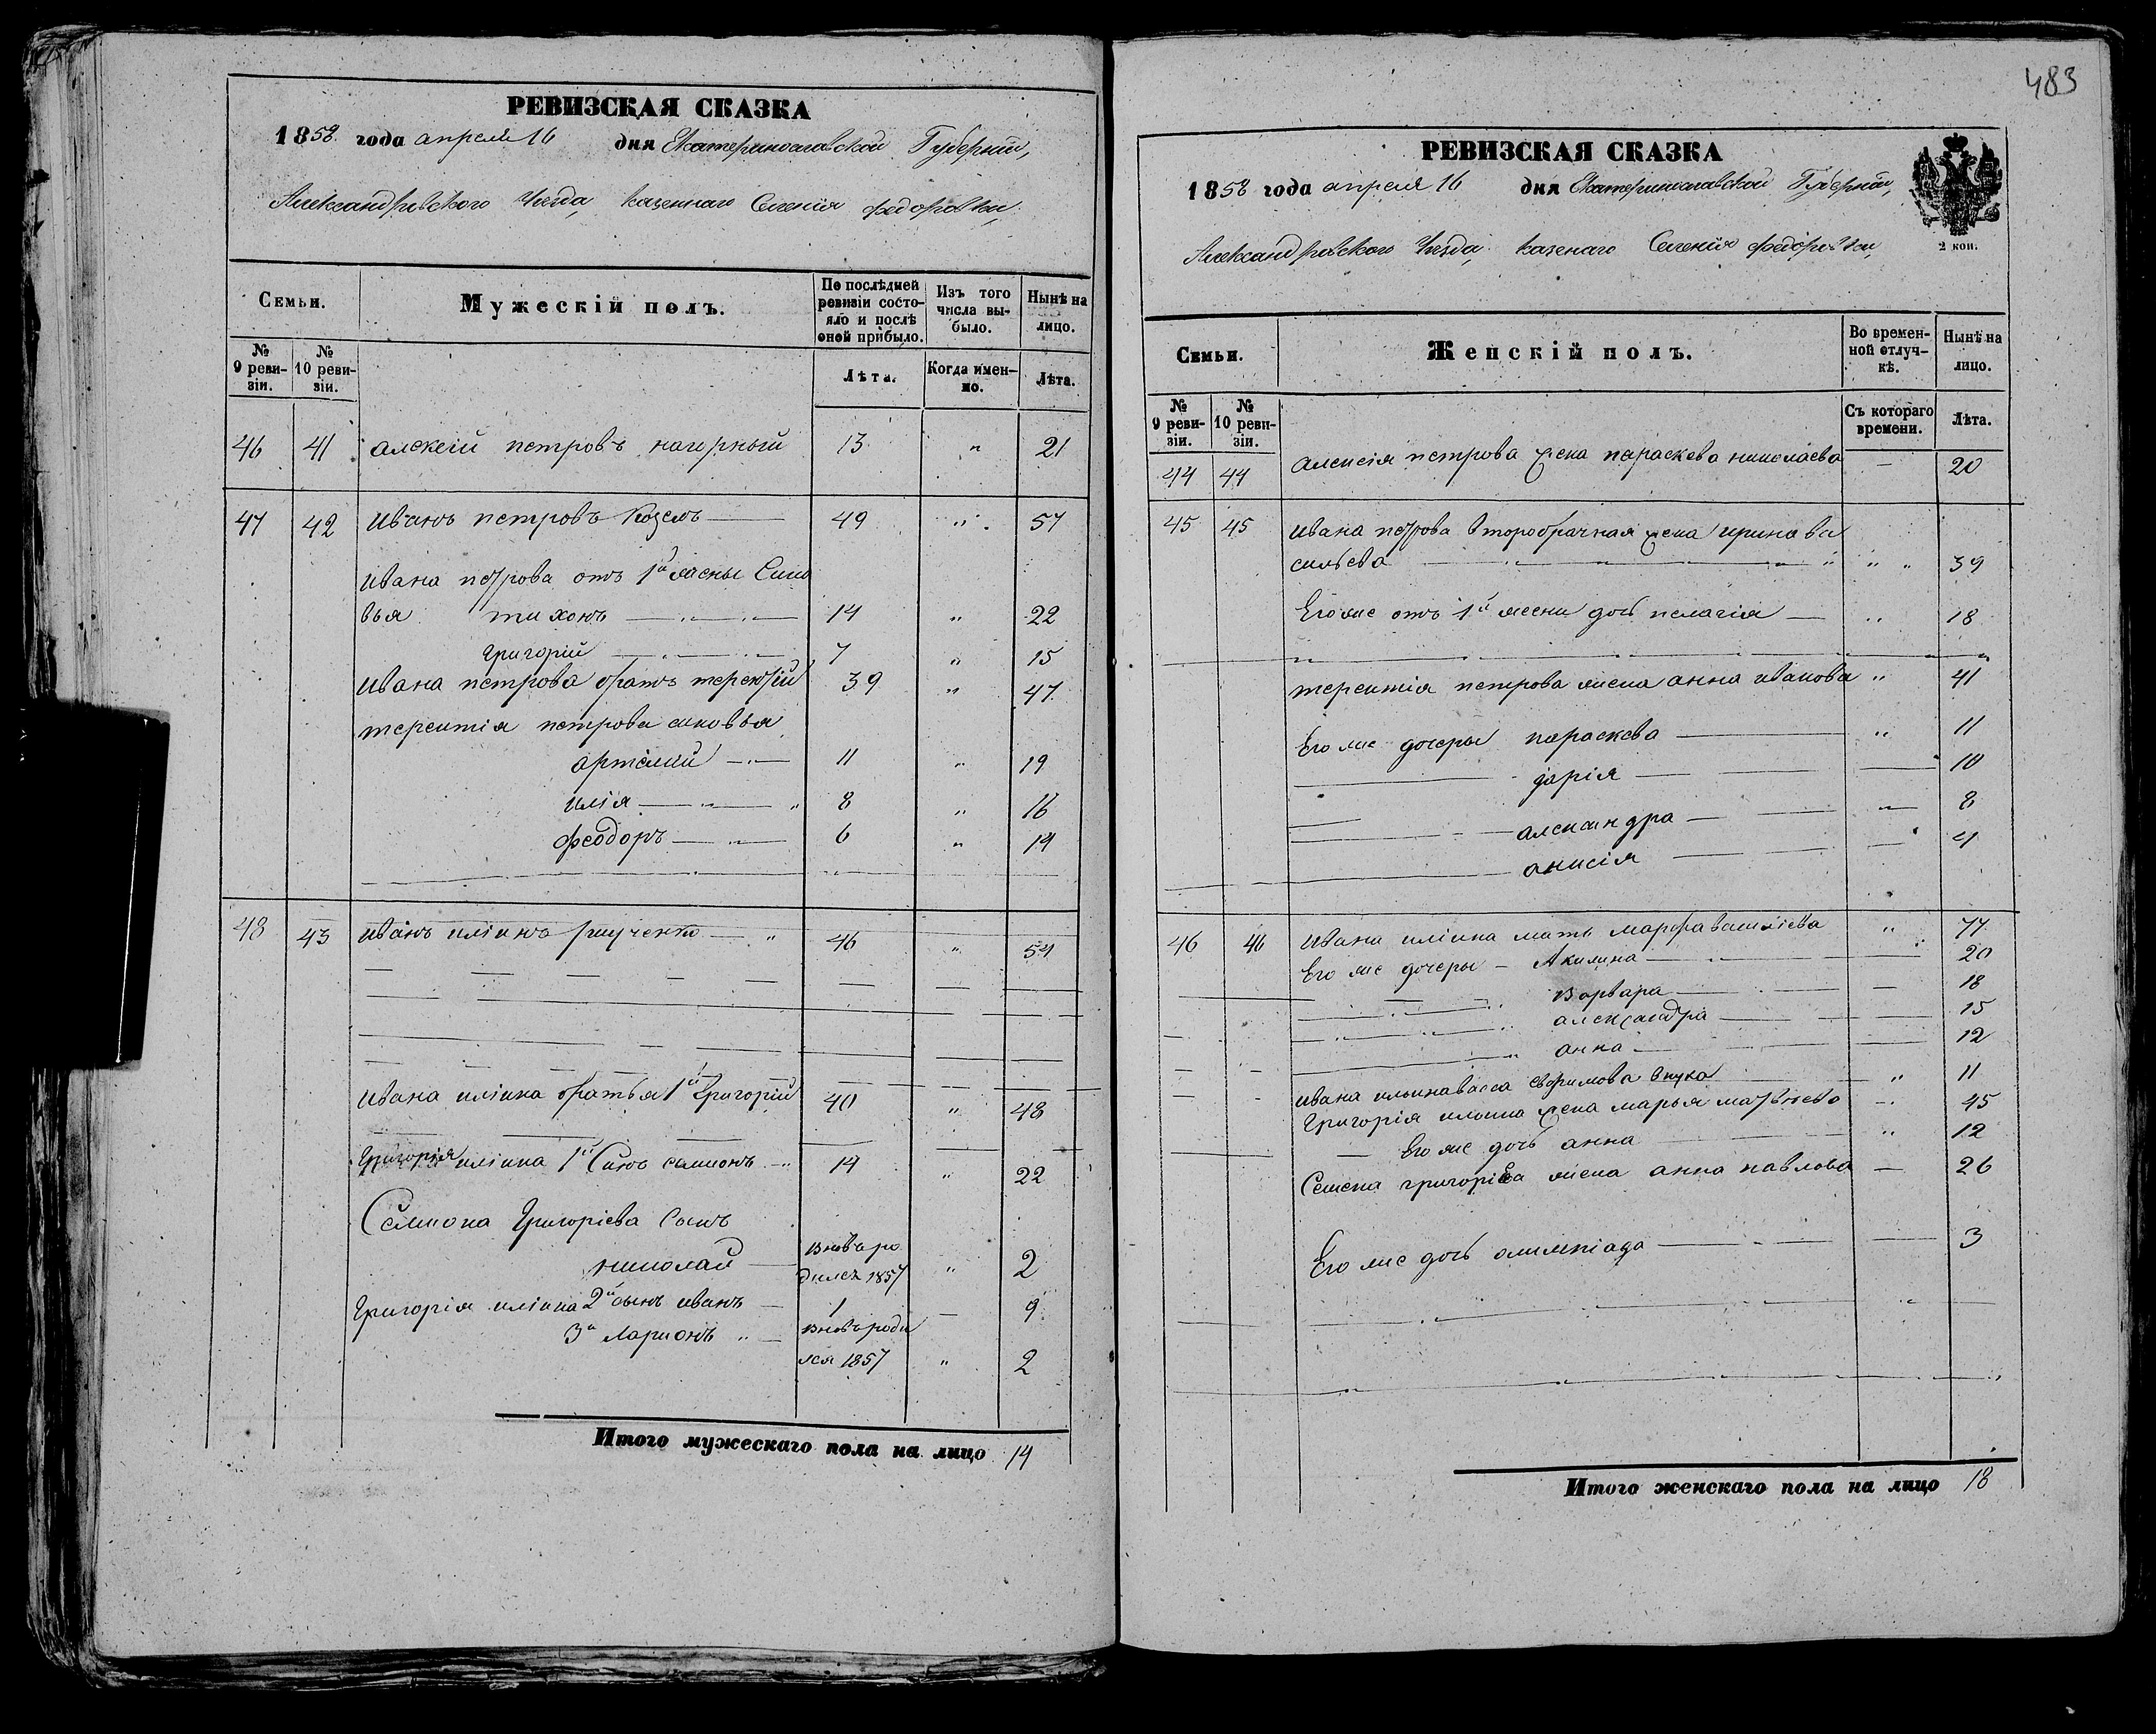 483
РЕВИЗСКАЯ СКАЗКА
1858 года апреля 16 дня Екатеринославской Губернии,
Александровского Уезда, казеннаго Селенія федоровки,
Семьи. Мужескій полъ. По послѣдней ревизіи состояло и послѣ оной прибыло. Изъ того числа выбыло. Нынѣ на лицо.
№ 9 ревизіи. № 10 ревизіи. Лѣта. Когда именно. Лѣта.
46 41 алексей петровъ нагорный 13 " 21
47 42 Иванъ петровъ Козелъ 49 " 57
Ивана петрова отъ 1й жены Сыно
вья тихонъ 14 " 22
григорий 7 " 15
Ивана петрова братъ терентий 39 " 47
терентія петрова сыновья
артемий 11 " 19
илія 8 " 16
феодоръ 6 " 14
48 43 Иванъ иліинъ 46 " 54
Ивана иліина братья 1й Григорий 40 " 48
Григорія иліина 1й Сынъ семионъ 14 " 22
Семиона Григоріева Сынъ
николай вновь ро
дился 1857 " 2
Григорія иліина 2й сынъ иванъ 1 9
3й Ларионъ вновь роди
лся 1857 " 2
Итого мужескаго пола на лицо 14
РЕВИЗСКАЯ СКАЗКА
1858 года апреля 16 дня Екатеринославской Губернии,
2 коп.
Александровского Уезда, казенаго Селенія федоровки,
Семьи. Женскій полъ. Во временной отлучкѣ. Нынѣ на лицо.
№ 9 ревизіи. № 10 ревизіи. Съ котораго времени. Лѣта.
44 44 алексія петрова жена параскева николаева 20
45 45 Ивана петрова второбрачная жена ирина ва
сильева " 39
Его же отъ 1й жены дочь пелагія " 18
терентія петрова жена анна иванова " 41
Его же дочеры параскева " 11
дарія 10
александра 8
анисія 4
46 46 Ивана иліина мать марфа василіева " 77
Его же дочеры Акилина 20
варвара 18
александра 15
анна 12
ивана ильина васса ефримова внука " 11
Григорія ильина жена марья матвеева 45
Его же дочь анна " 12
Семена григоріева жена анна павлова 26
Его же дочь олимпіада 3
Итого женскаго пола на лицо 18